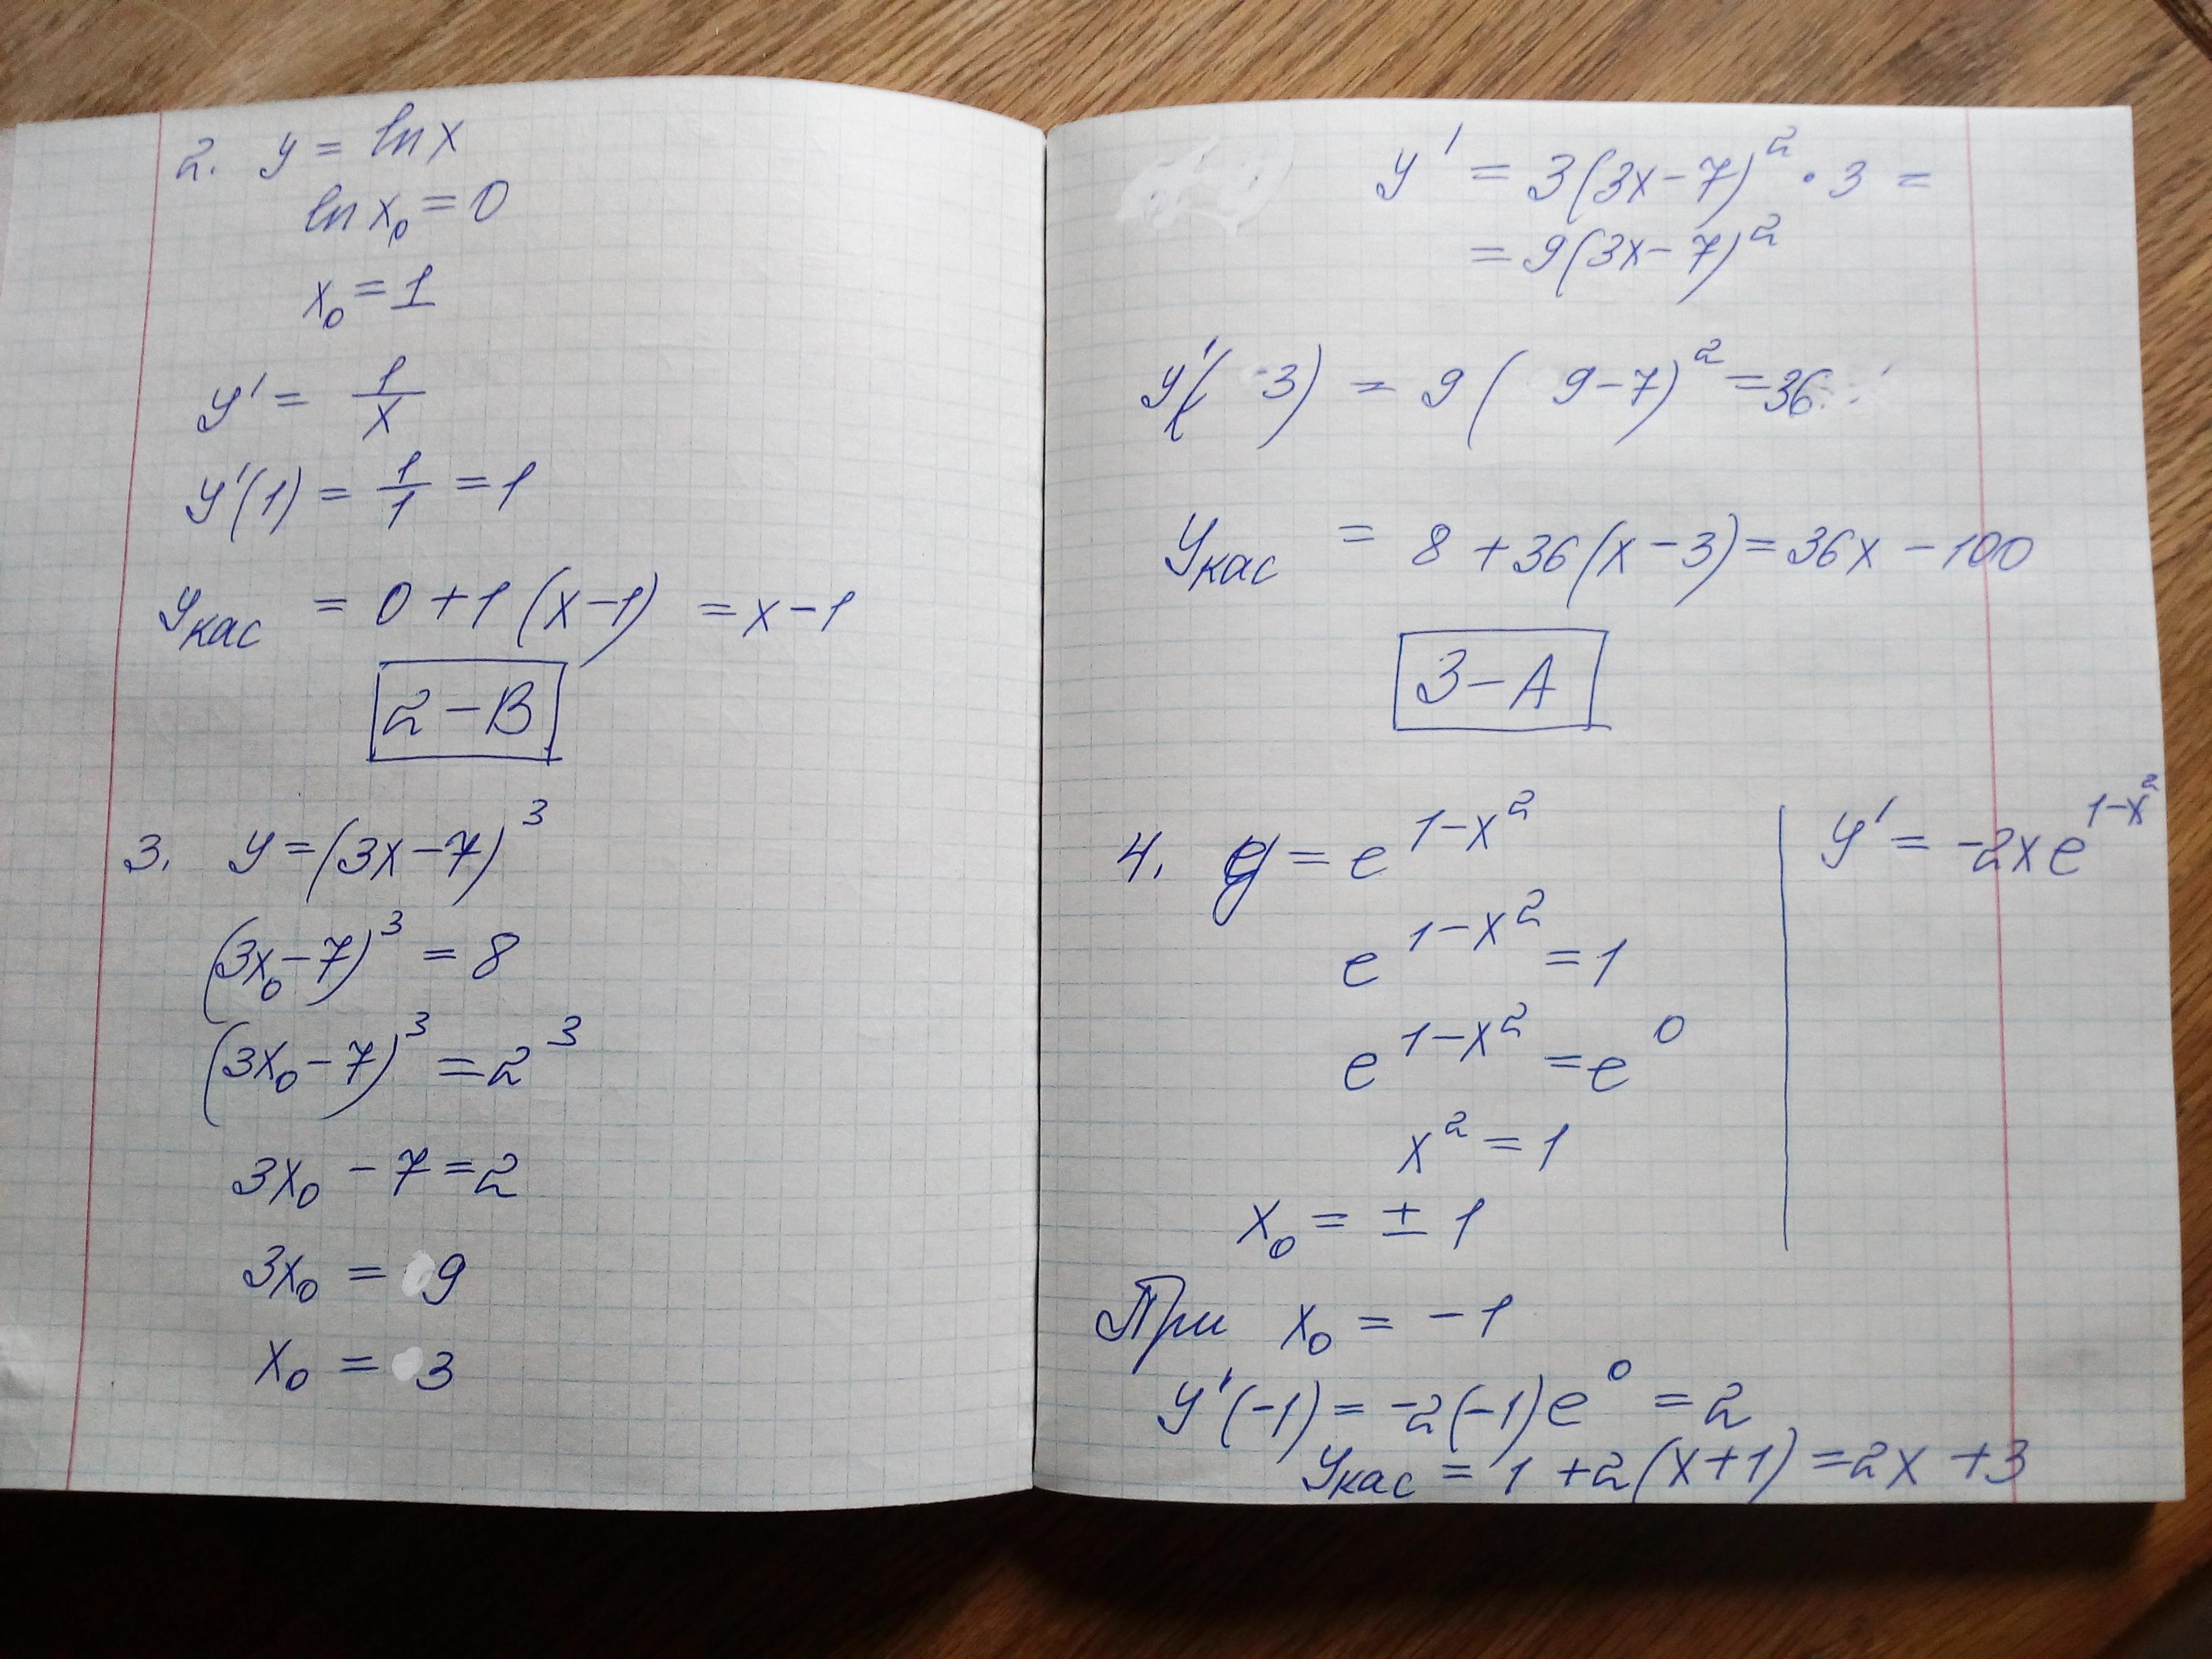 2. y = ln x
ln x₀ = 0
x₀ = 1
y' = 1/x
y'(1) = 1/1 = 1
Yкас = 0 + 1 (x – 1) = x – 1
2 – В
3. y = (3x – 7)³
(3x₀ – 7)³ = 8
(3x₀ – 7)³ = 2³
3x₀ – 7 = 2
3x₀ = 9
x₀ = 3
y' = 3(3x – 7)² · 3 =
= 9(3x – 7)²
y'( 3) = 9( 9 – 7)² = 36
Yкас = 8 + 36(x – 3) = 36x – 100
3 – А
4. y = e^(1–x²)
e^(1–x²) = 1
e^(1–x²) = e⁰
x² = 1
x₀ = ± 1
y' = -2xe^(1–x²)
При x₀ = – 1
y'(-1) = -2(-1)e⁰ = 2
Yкас = 1 + 2(x+1) = 2x + 3